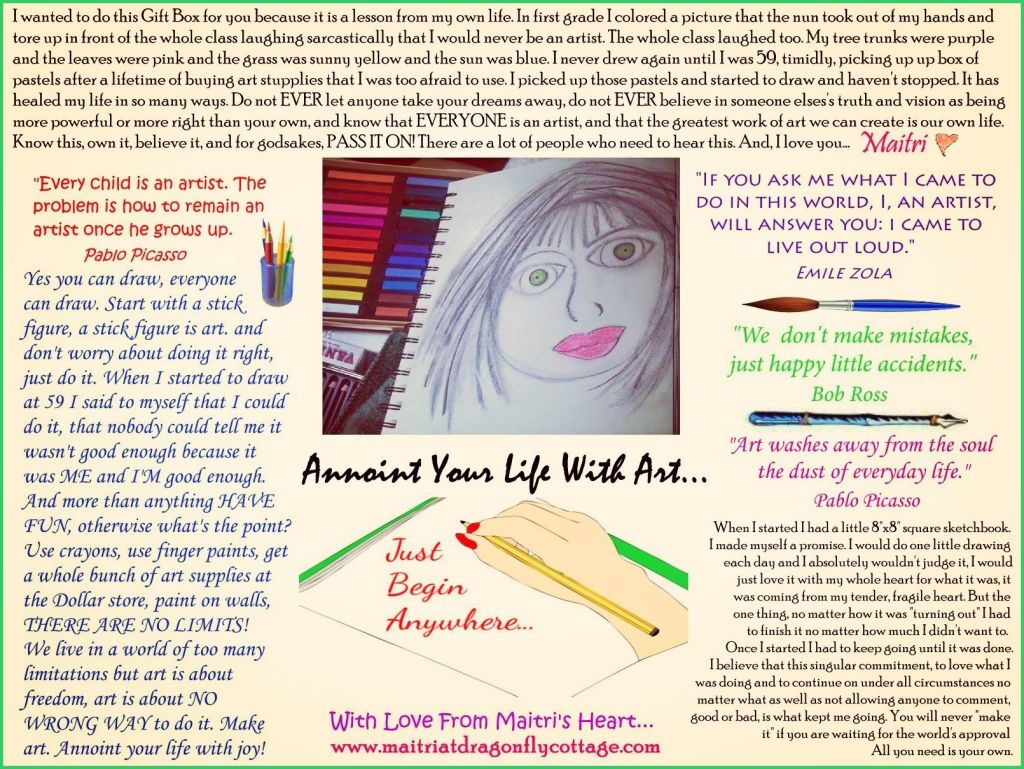 I wanted to do this Gift Box for you because it is a lesson from my own life. In first grade I colored a picture that the nun took out of my hands and
tore up in front of the whole class laughing sarcastically that I would never be an artist. The whole class laughed too. My tree trunks were purple
and the leaves were pink and the grass was sunny yellow and the sun was blue. I never drew again until I was 59, timidly, picking up up box of
pastels after a lifetime of buying art stupplies that I was too afraid to use. I picked up those pastels and started to draw and haven't stopped. It has
healed my life in so many ways. Do not EVER let anyone take your dreams away, do not EVER believe in someone elses's truth and vision as being
more powerful or more right than your own, and know that EVERYONE is an artist, and that the greatest work of art we can create is our own life.
Know this, own it, believe it, and for godsakes, PASS IT ON! There are a lot of people who need to hear this. And, I love you... Maitri
"Every child is an artist. The
problem is how to remain an
artist once he grows up.
Pablo Picasso
Yes you can draw, everyone
can draw. Start with a stick
figure, a stick figure is art. and
don't worry about doing it right,
just do it. When I started to draw
at 59 I said to myself that I could
do it, that nobody could tell me it
wasn't good enough because it
was ME and I'M good enough.
And more than anything HAVE
FUN, otherwise what's the point?
Use crayons, use finger paints, get
a whole bunch of art supplies at
the Dollar store, paint on walls,
THERE ARE NO LIMITS!
We live in a world of too many
limitations but art is about
freedom, art is about NO
WRONG WAY to do it. Make
art. Annoint your life with joy!
Annoint Your Life With Art...
Just
Begin
Anywhere...
With Love From Maitri's Heart...
www.maitriatdragonflycottage.com
"If you ask me what I came to
do in this world, I, an artist,
will answer you: i came to
live out loud."
Emile zola
"We don't make mistakes,
just happy little accidents."
Bob Ross
"Art washes away from the soul
the dust of everyday life."
Pablo Picasso
When I started I had a little 8"x8" square sketchbook.
I made myself a promise. I would do one little drawing
each day and I absolutely wouldn't judge it, I would
just love it with my whole heart for what it was, it
was coming from my tender, fragile heart. But the
one thing, no matter how it was "turning out" I had
to finish it no matter how much I didn't want to.
Once I started I had to keep going until it was done.
I believe that this singular commitment, to love what I
was doing and to continue on under all circumstances no
matter what as well as not allowing anyone to comment,
good or bad, is what kept me going. You will never "make
it" if you are waiting for the world's approval
All you need is your own.